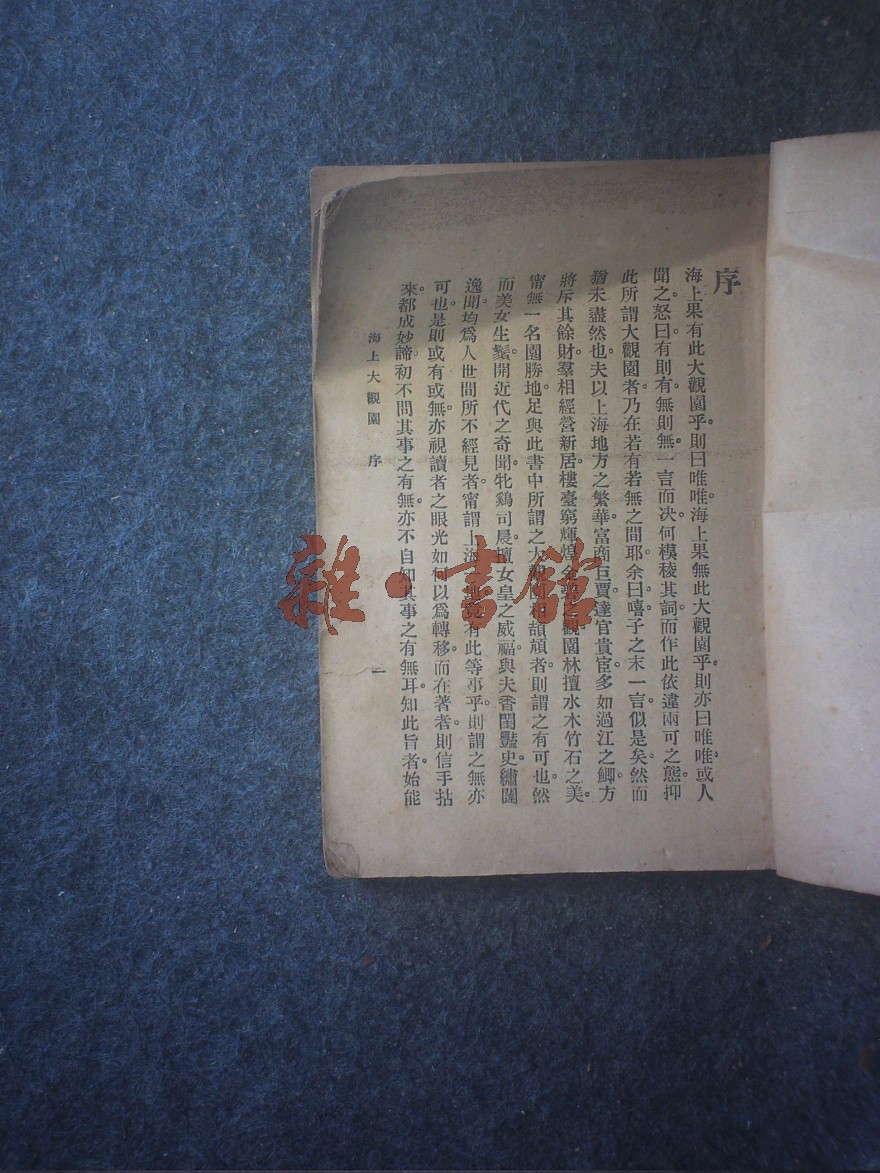 序
海上果有此大觀園乎。則曰唯唯。海上果無此大觀園乎。則亦曰唯唯。或人
聞之怒曰。有則有。無則無。一言而决。何模稜其詞。而作此依違兩可之態。抑
此所謂大觀園者。乃在若有若無之間耶。余曰。嘻。子之末一言。似是矣。然而
猶未盡然也。夫以上海地方之繁華。富商巨賈。達官貴宦。多如過江之鯽。方
將斥其餘財。羣相經營新居。樓臺窮輝煌金碧之觀。園林擅水木竹石之美。
甯無一名園勝地。足與此書中所謂之大觀園相頡頏者。則謂之有可也。然
而美女生鬚。開近代之奇聞。牝鷄司晨。擅女皇之威福。與夫香閨豔史。繡闥
逸聞。均爲人世間所不經見者。甯謂上海一地竟有此等事乎。則謂之無亦
可也。是則或有或無。亦視讀者之眼光如何以爲轉移。而在著者。則信手拈
來。都成妙諦。初不問其事之有無。亦不自知其事之有無耳。知此旨者。始能
海上大觀園 序 一
雜·書館